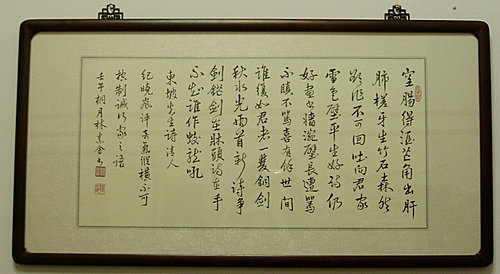 空腸得酒芒角出肝
肺槎牙生竹石森然
欲作不可回吐向君家
雪色壁平生好詩仍
好畫書牆涴壁長遭罵
不瞋不罵喜有餘世間
誰復如君者一雙銅劍
秋水光兩首新詩爭
劍鋩劍在牀頭詩在手
不知誰作蛟龍吼
東坡先生詩清人
紀曉嵐評奇氣縱橫不可
控制誠行家之語
壬午桐月林